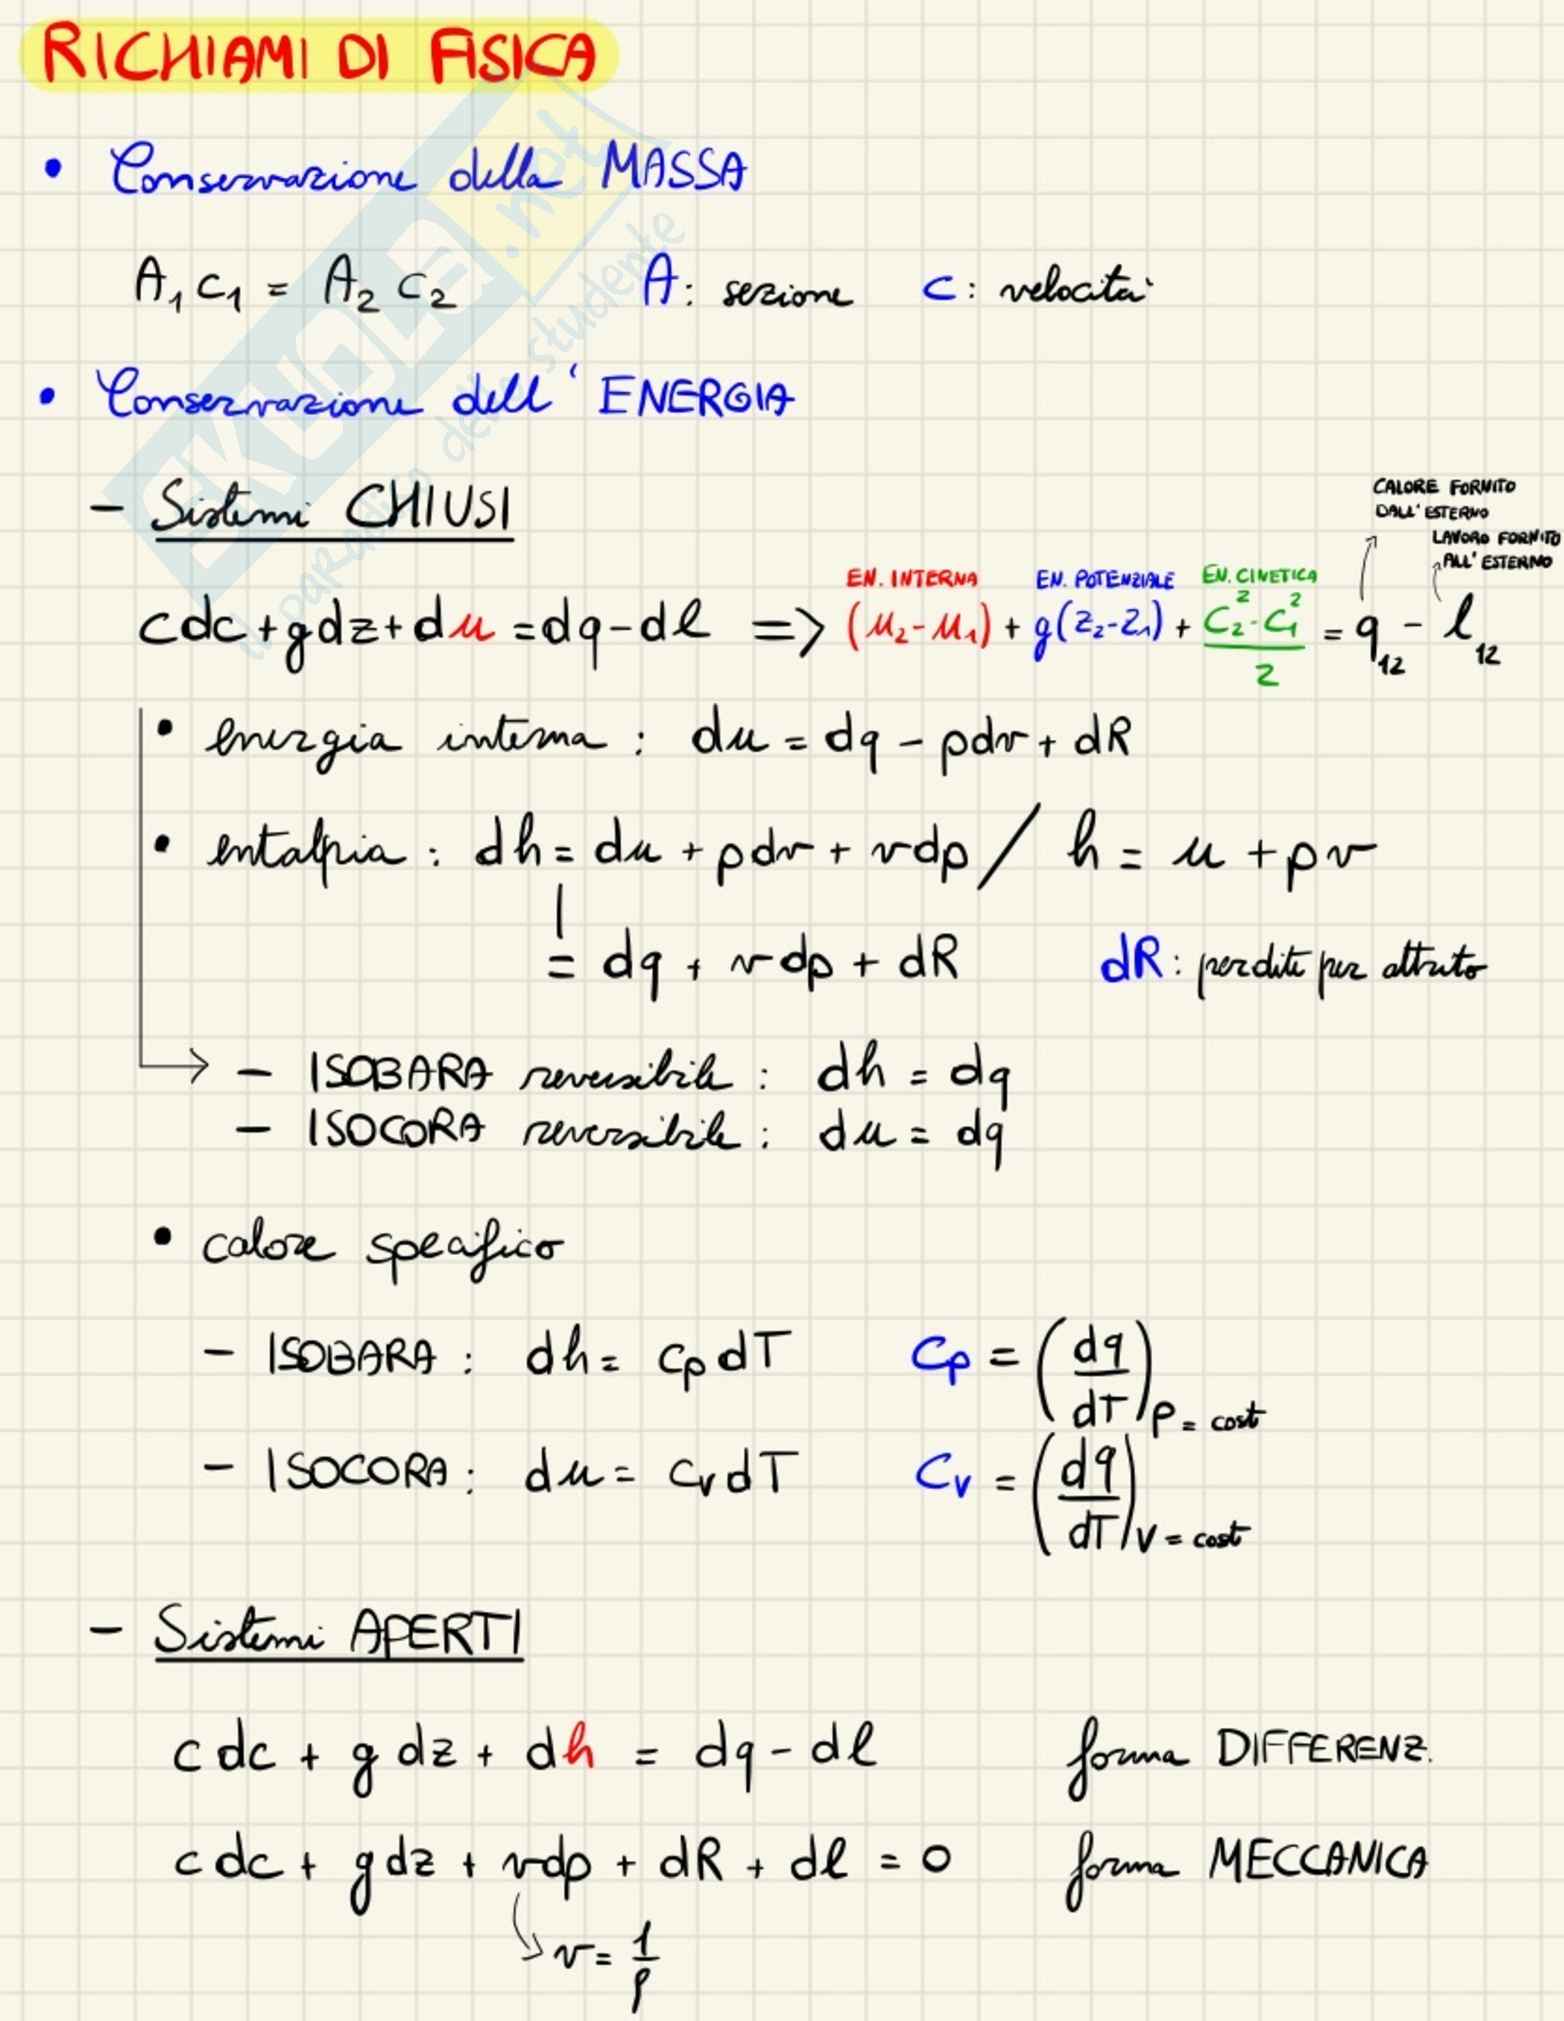 RICHIAMI DI FISICA
• Conservazione della MASSA
A₁ c₁ = A₂ c₂ A: sezione c: velocità
• Conservazione dell'ENERGIA
- Sistemi CHIUSI
CALORE FORNITO
DALL'ESTERNO
LAVORO FORNITO
ALL'ESTERNO
EN. INTERNA EN. POTENZIALE EN. CINETICA
cdc + gdz + du = dq - dl => (u₂-u₁) + g(z₂-z₁) + (c₂²-c₁²)/2 = q₁₂ - l₁₂
• energia interna: du = dq - pdv + dR
• entalpia: dh = du + pdv + vdp / h = u + pv
= dq + vdp + dR dR: perdite per attrito
→ - ISOBARA reversibile: dh = dq
- ISOCORA reversibile: du = dq
• calore specifico
- ISOBARA: dh = cp dT Cp = (dq/dT) p = cost
- ISOCORA: du = cv dT Cv = (dq/dT) v = cost
- Sistemi APERTI
c dc + g dz + dh = dq - dl forma DIFFERENZ.
c dc + g dz + vdp + dR + dl = 0 forma MECCANICA
v = 1/ρ
SKUOLA.net
il paradiso dello studente